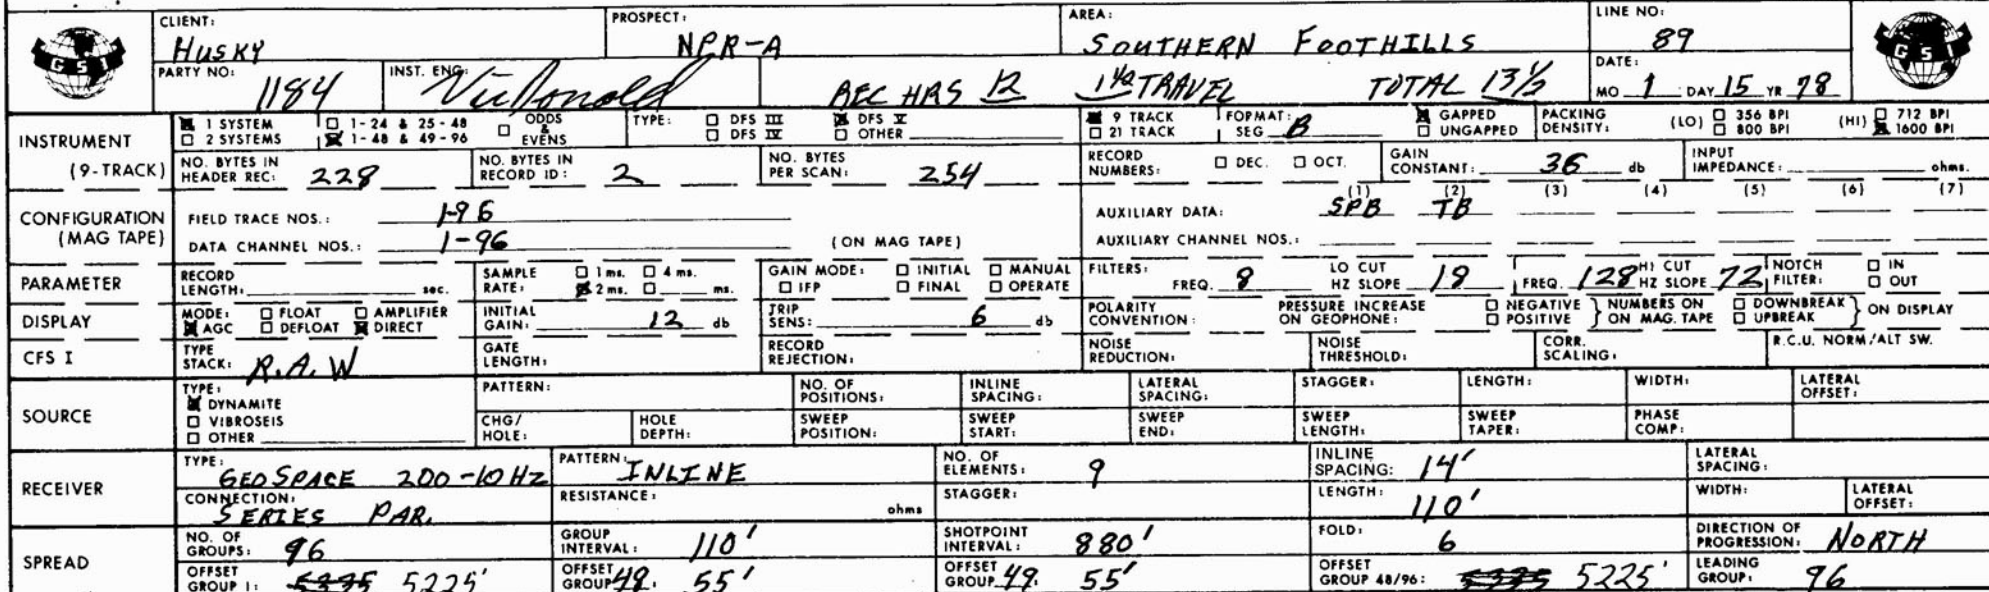 CLIENT: PROSPECT: AREA: LINE NO:
HUSKY NPR-A SOUTHERN FOOTHILLS 89
PARTY NO: INST. ENG: DATE:
1184 REC HRS 12 TRAVEL TOTAL 13½ MO 1 DAY 15 YR 78
GSI GSI
INSTRUMENT (9-TRACK)
1 SYSTEM 1-24 & 25-48 ODDS & EVENS TYPE: DFS III DFS V 9 TRACK FORMAT: GAPPED PACKING DENSITY: (LO) 356 BPI (HI) 712 BPI
2 SYSTEMS 1-48 & 49-96 DFS IV OTHER 21 TRACK SEG B UNGAPPED 800 BPI 1600 BPI
NO. BYTES IN HEADER REC: 228 NO. BYTES IN RECORD ID: 2 NO. BYTES PER SCAN: 254 RECORD NUMBERS: DEC. OCT. GAIN CONSTANT: 36 db INPUT IMPEDANCE: ohms.
CONFIGURATION (MAG TAPE)
(1) (2) (3) (4) (5) (6) (7)
FIELD TRACE NOS.: 1-96 AUXILIARY DATA: SPB TB
DATA CHANNEL NOS.: 1-96 (ON MAG TAPE) AUXILIARY CHANNEL NOS.:
PARAMETER
RECORD LENGTH: sec. SAMPLE RATE: 1 ms. 4 ms. 2 ms. ms. GAIN MODE: INITIAL MANUAL IFP FINAL OPERATE FILTERS: FREQ. 8 LO CUT HZ SLOPE 18 FREQ. 128 HI CUT HZ SLOPE 72 NOTCH FILTER: IN OUT
DISPLAY
MODE: FLOAT AMPLIFIER AGC DEFLOAT DIRECT INITIAL GAIN: 12 db TRIP SENS: 6 db POLARITY CONVENTION: PRESSURE INCREASE ON GEOPHONE: NEGATIVE POSITIVE NUMBERS ON ON MAG. TAPE DOWNBREAK UPBREAK ON DISPLAY
CFS I
TYPE STACK: R.A.W GATE LENGTH: RECORD REJECTION: NOISE REDUCTION: NOISE THRESHOLD: CORR. SCALING: R.C.U. NORM./ALT SW.
SOURCE
TYPE: DYNAMITE VIBROSEIS OTHER
PATTERN: NO. OF POSITIONS: INLINE SPACING: LATERAL SPACING: STAGGER: LENGTH: WIDTH: LATERAL OFFSET:
CHG/HOLE: HOLE DEPTH: SWEEP POSITION: SWEEP START: SWEEP END: SWEEP LENGTH: SWEEP TAPER: PHASE COMP:
RECEIVER
TYPE: GEOSPACE 200-10 HZ PATTERN: INLINE NO. OF ELEMENTS: 9 INLINE SPACING: 14' LATERAL SPACING:
CONNECTION: SERIES PAR. RESISTANCE: ohms STAGGER: LENGTH: 110' WIDTH: LATERAL OFFSET:
SPREAD
NO. OF GROUPS: 96 GROUP INTERVAL: 110' SHOTPOINT INTERVAL: 880' FOLD: 6 DIRECTION OF PROGRESSION: NORTH
OFFSET GROUP 1: 5225' OFFSET GROUP 48: 55' OFFSET GROUP 49: 55' OFFSET GROUP 48/96: 5225' LEADING GROUP: 96